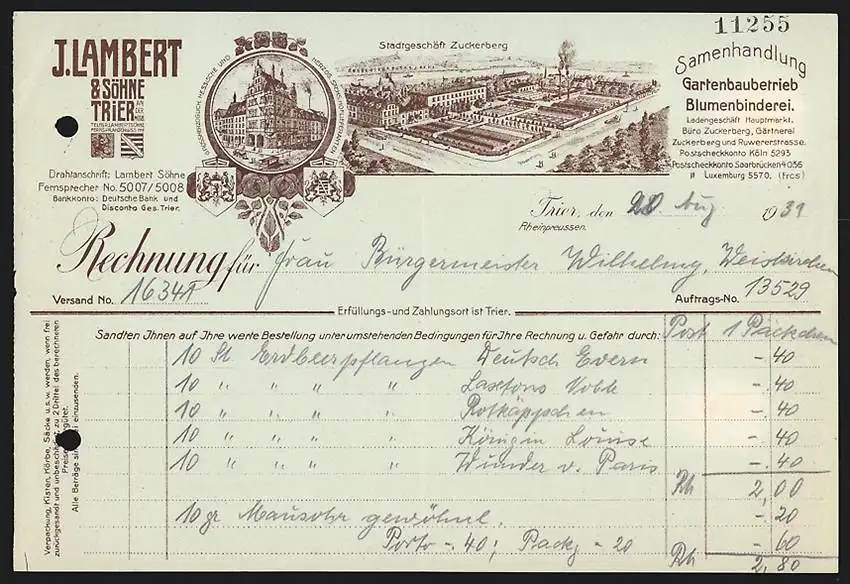 11255
J. LAMBERT
& SÖHNE
TRIER AN DER MOSEL
GROSSHERZOGLICH HESSISCHE UND
Stadtgeschäft Zuckerberg
Samenhandlung
Gartenbaubetrieb
Blumenbinderei.
Ladengeschäft Hauptmarkt.
Büro Zuckerberg, Gärtnerei
Zuckerberg und Ruwererstrasse.
Postscheckkonto Köln 5293
Postscheckkonto Saarbrücken 4056
" Luxemburg 5570. (frcs)
Drahtanschrift: Lambert Söhne
Fernsprecher No. 5007/5008
Bankkonto: Deutsche Bank und
Disconto Ges. Trier.
Trier, den 20 Aug 1931
Rheinpreussen.
Rechnung für Frau Bürgermeister Wilhelmy, Weiskirchen
Versand No. 16341
Auftrags-No. 13529
Erfüllungs- und Zahlungsort ist Trier.
Sandten Ihnen auf Ihre werte Bestellung unter umstehenden Bedingungen für Ihre Rechnung u. Gefahr durch: Post 1 Päckchen
10 St. Erdbeerpflanzen Deutsch Evern -.40
10 " " " " Laxtons Noble -.40
10 " " " " Rotkäppchen -.40
10 " " " " Königin Louise -.40
10 " " " " Wunder v. Paris -.40
Rh 2,00
10 gr Mausohr gewöhnl. -20
Porto -.40; Packg -20 -60
Rh 2,80
Verpackung, Kisten, Körbe, Säcke u.s.w. werden, wenn frei
zurückgesandt und unbeschädigt, zu 2 Drittel des berechneten
Preises vergütet.
Alle Beträge sind einzusenden.